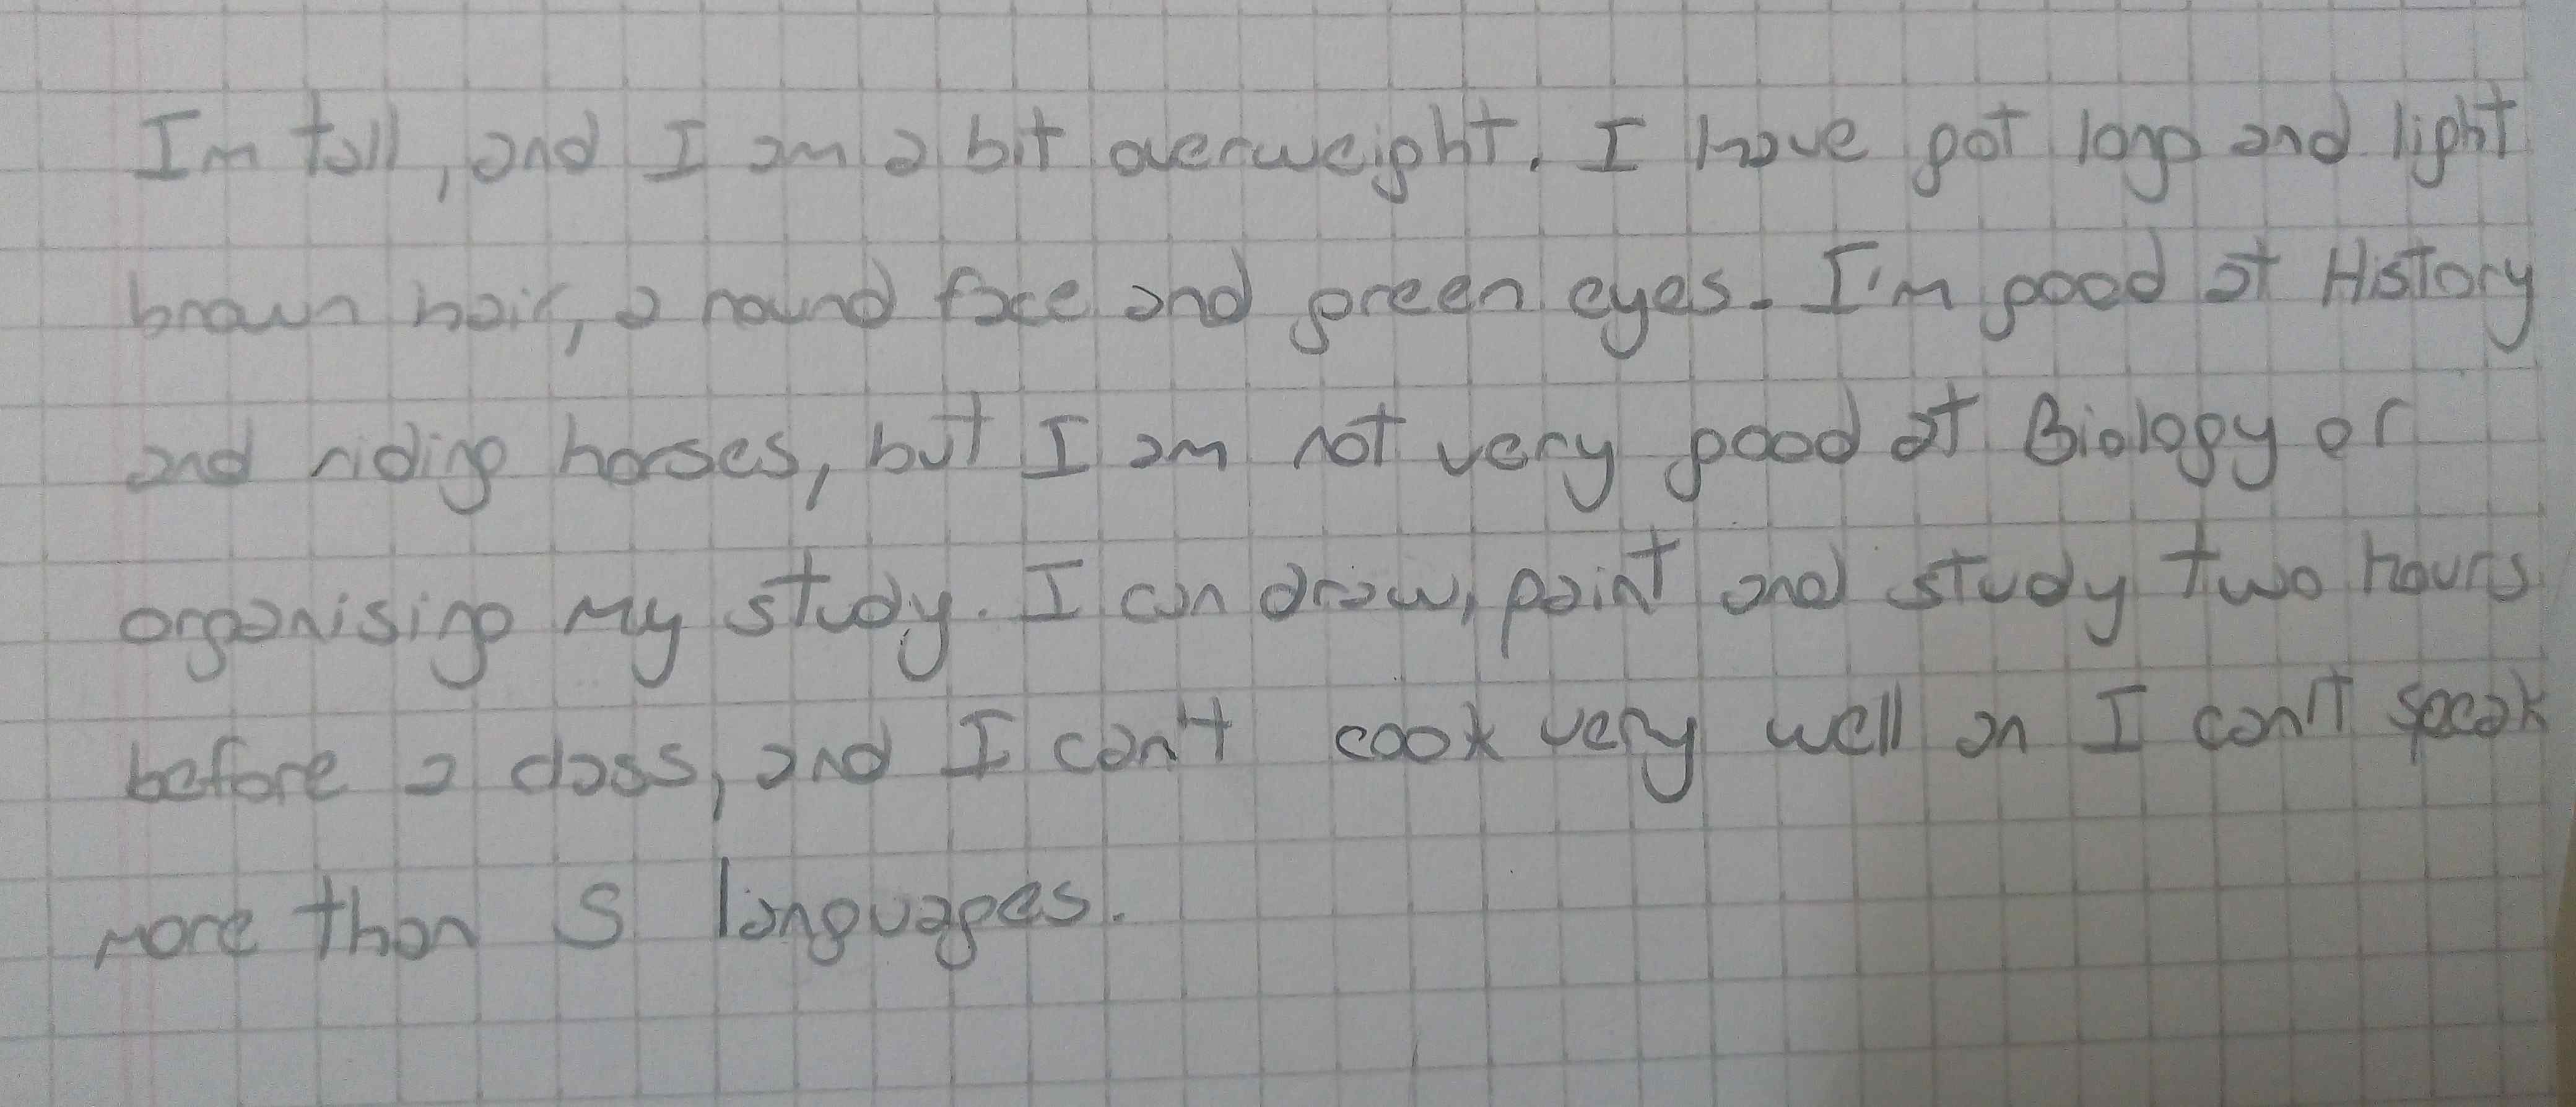 Im tall, and I am a bit overweight. I have got long and light
brown hair, a round face and green eyes. I'm good at History
and riding horses, but I am not very good at Biology or
organising my study. I can draw, paint and study two hours
before a class, and I can't cook very well an I can't speak
more than 5 languages.